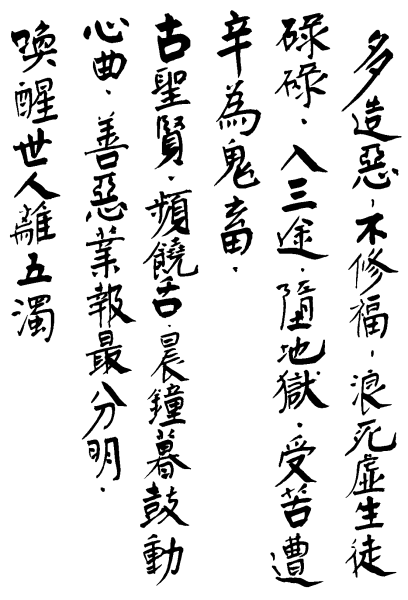 多造惡，不修福，浪死虛生徒
碌碌．入三途．墮地獄．受苦遭
辛為鬼畜．
古聖賢．頻饒舌．晨鐘暮鼓動
心曲．善惡業報最分明．
喚醒世人離五濁